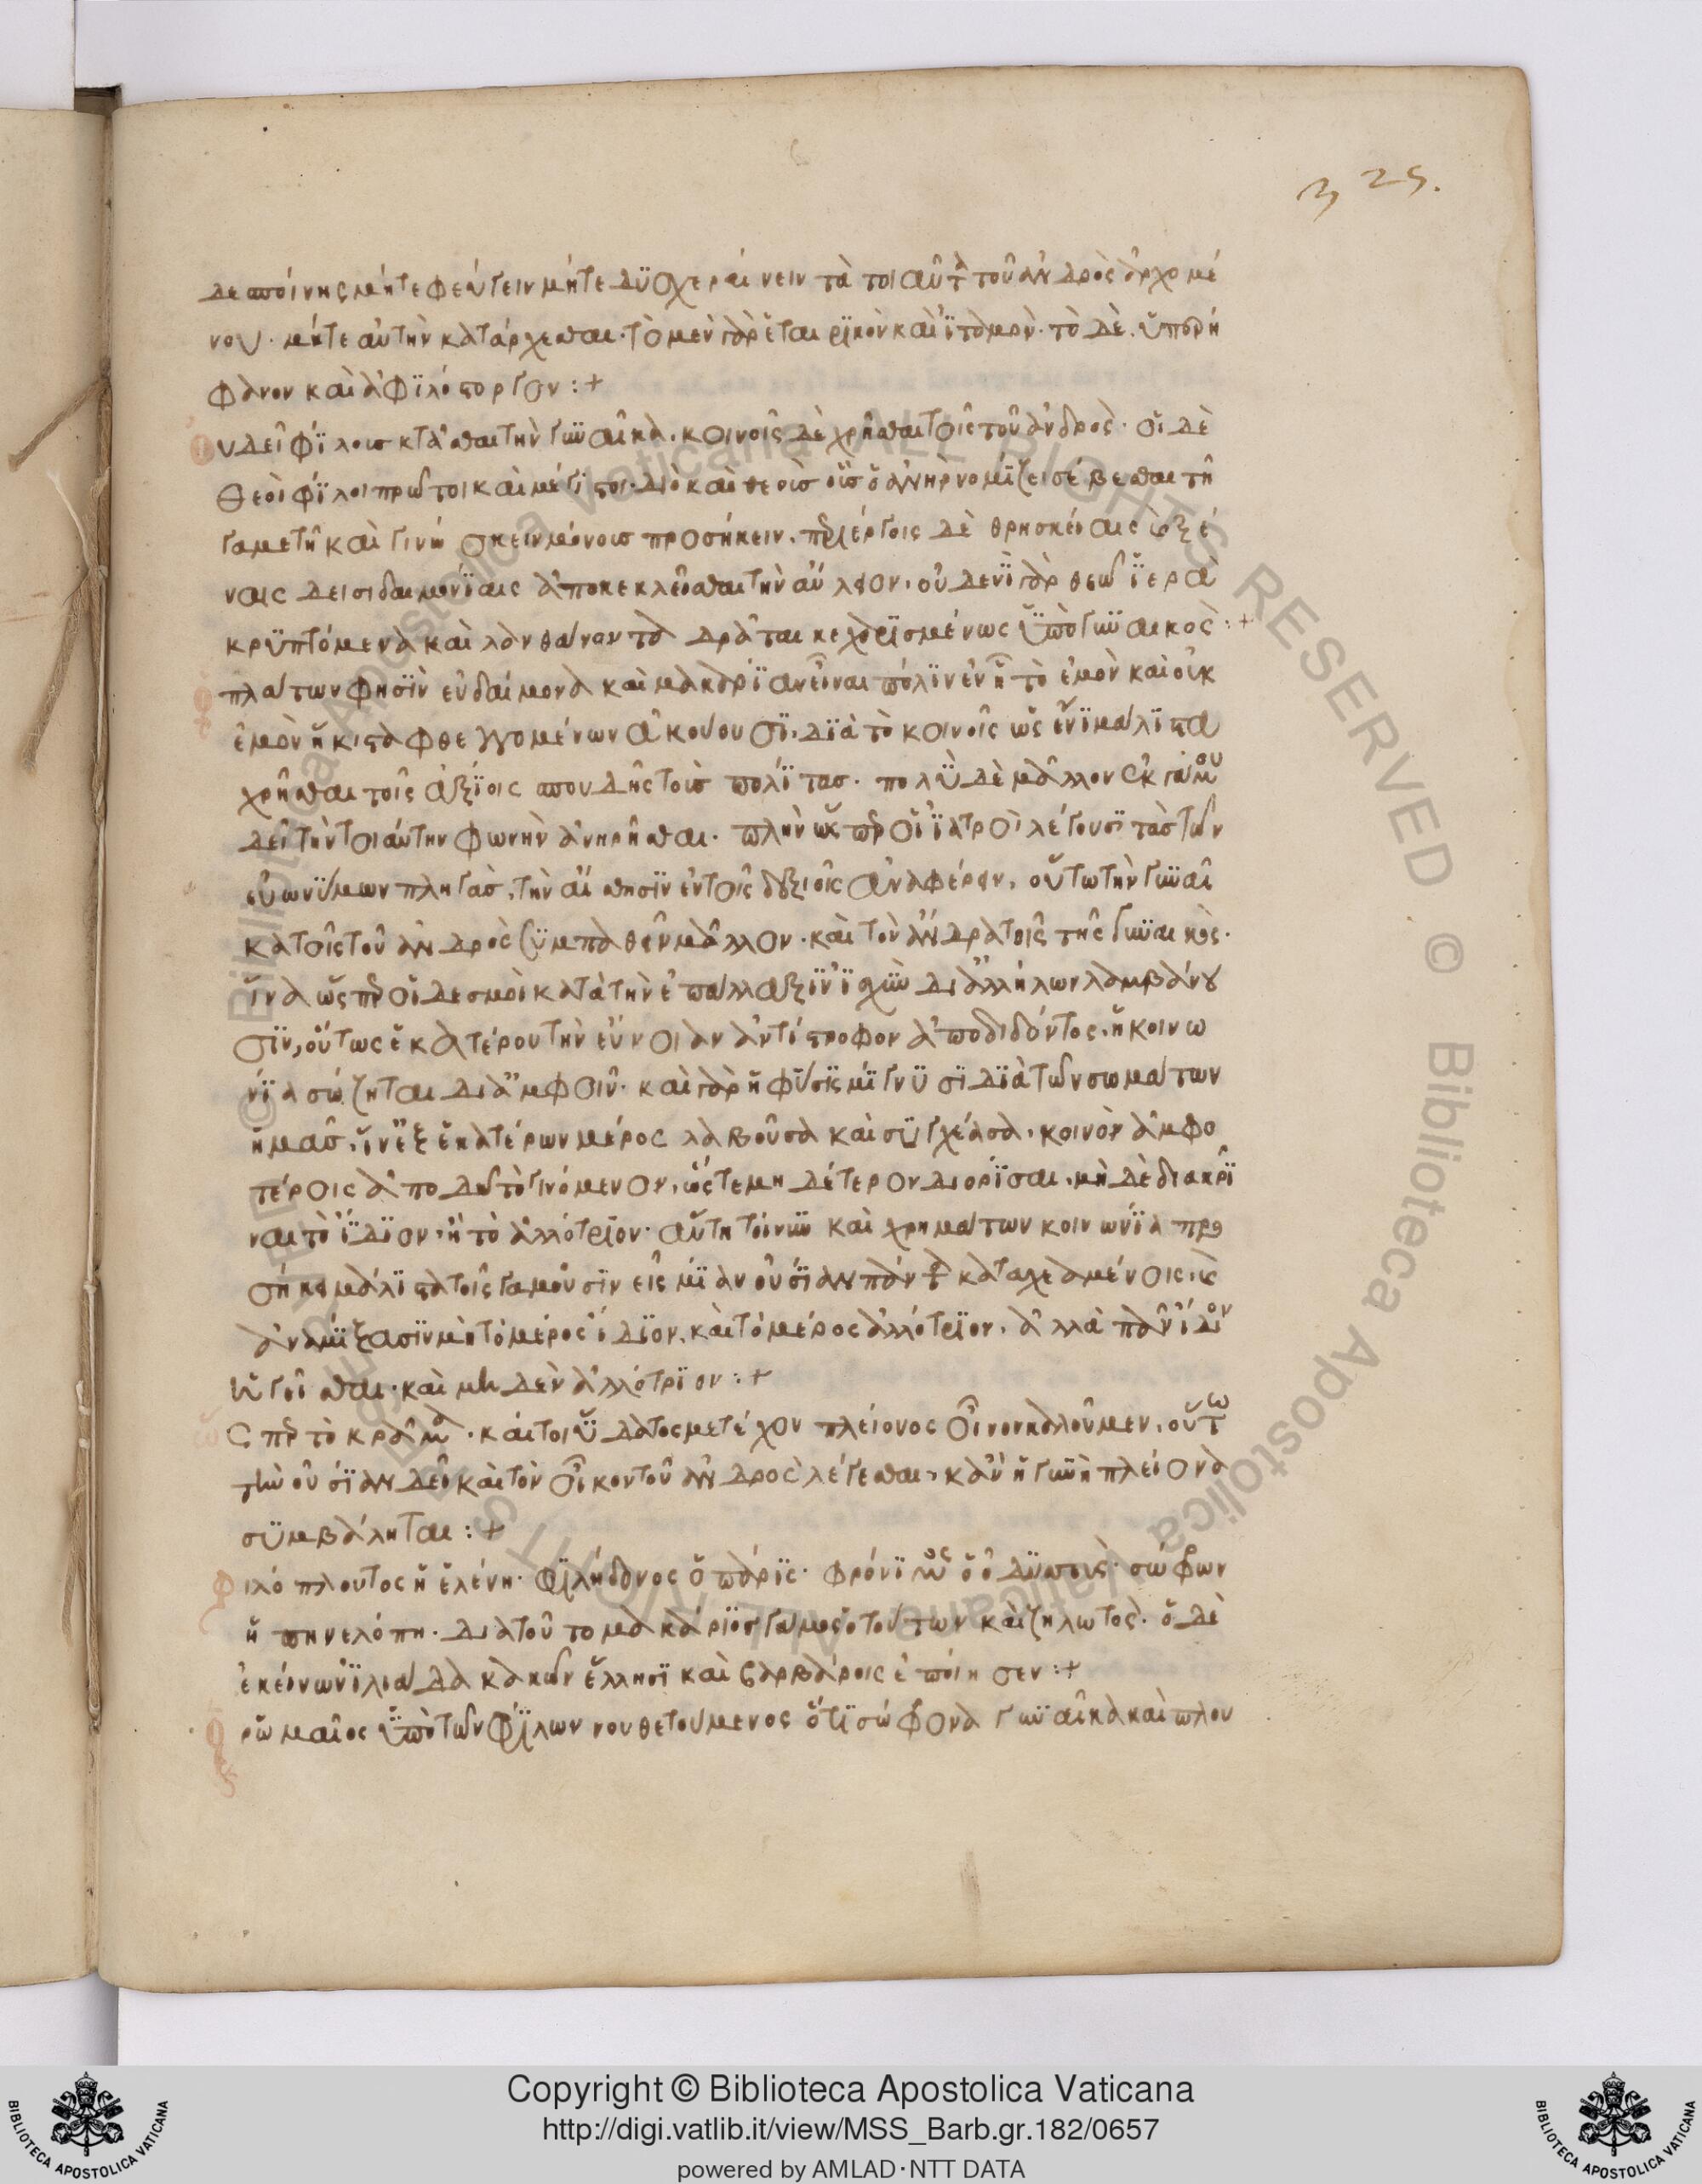 325.
δεσποίνης μήτε φεύγειν μήτε δϋσχεραίνειν τὰ τοιαῦτα τοῦ ἀνδρὸς ἀρχομέ
νου· μήτε αὐτὴν κατάρχεσθαι· τὸ μὲν γὰρ ἑταιρϊκὸν καὶ ἰταμὸν· τὸ δὲ ὑπερή
φανον καὶ ἀφϊλόστοργον :+
Οὐ δεῖ φΐλους κτᾶσθαι τὴν γϋναῖκα· κοινοῖς δὲ χρῆσθαι τοῖς τοῦ ἀνδρὸς· οἱ δὲ
θεοὶ φΐλοι πρῶτοι καὶ μέγϊστοι· διὸ καὶ θεοὺς οὓς ὁ ἀνὴρ νομΐζει σέβεσθαι τῇ
γαμετῇ καὶ γινώσκειν μόνους προσήκειν. περιέργοις δὲ θρησκείαις καὶ ξέ
ναις δεισιδαιμονΐαις ἀποκεκλεῖσθαι τὴν αὔλειον. οὐδενῒ γὰρ θεῶ ἱερὰ
κρϋπτόμενα καὶ λανθάνοντα δρᾶται κεχαρϊσμένως ὑπὸ γϋναικὸς :+
πλάτων φησῒν εὐδαίμονα καὶ μακαρΐαν εἶναι πόλϊν ἐν ᾗ τὸ ἐμὸν καὶ οὐκ
ἐμὸν ἥκιστα φθεγγομένων ἀκούουσϊ. δϊὰ τὸ κοινοῖς ὡς ἔνϊ μάλϊστα
χρῆσθαι τοῖς ἀξΐοις σπουδῆς τοὺς πολΐτας. πολῢ δὲ μᾶλλον ἐκ γάμου
δεῖ τὴν τοιαύτην φωνὴν ἀνηρῆσθαι. πλὴν ὥσπερ οἱ ἰατροὶ λέγουσϊ τὰς τῶν
εὐωνΰμων πληγὰς, τὴν αἴσθησϊν ἐν τοῖς δεξιοῖς ἀναφέρειν, οὕτω τὴν γϋναῖ
κα τοῖς τοῦ ἀνδρὸς σϋμπαθεῖν μᾶλλον· καὶ τὸν ἄνδρα τοῖς τῆς γϋναικὸς.
ἵνα ὥσπερ οἱ δεσμοὶ κατὰ τὴν ἐπάλλαξϊν ἰσχῢν δι᾽ ἀλλήλων λαμβάνου
σϊν, οὕτως ἑκατέρου τὴν εὔνοιαν ἀντίστροφον ἀποδιδόντος. ἡ κοινω
νΐα σώζηται δι᾽ ἀμφοῖν· καὶ γὰρ ἡ φΰσϊς μΐγνϋσϊ δϊὰ τῶν σωμάτων
ἡμᾶς, ἵν᾽ ἐξ ἑκατέρων μέρος λαβοῦσα καὶ σϋγχέασα, κοινὸν ἀμφο
τέροις ἀποδῶ τὸ γινόμενον, ὥστε μηδέτερον διορΐσαι. μὴ δὲ διακρῖ
ναι τὸ ἴδϊον, ἢ τὸ ἀλλότρϊον· αὕτη τοίνϋν καὶ χρημάτων κοινωνΐα προ
σήκει μάλϊστα τοῖς γαμοῦσϊν εἰς μΐαν οὐσΐαν πάντα καταχεαμένοις καὶ
ἀναμΐξασϊν μὴ τὸ μέρος ἴδϊον, καὶ τὸ μέρος ἀλλότρϊον, ἀλλὰ πᾶν ἴδιον
ἡγεῖσθαι. καὶ μηδὲν ἀλλότρϊον :+
Ὥσπερ τὸ κρᾶμα· καίτοι ὕδατος μετέχον πλείονος οἶνον καλοῦμεν, οὕτω
τὴν οὐσΐαν δεῖ καὶ τὸν οἶκον τοῦ ἀνδρὸς λέγεσθαι, κἂν ἡ γϋνὴ πλείονα
σϋμβάληται :+
Φιλόπλουτος ἡ ἑλένη· φϊλήδονος ὁ πάρϊς· φρόνϊμος ὁ ὀδϋσσεὺς· σώφρων
ἡ πηνελόπη. διὰ τοῦτο μακάρϊος γάμος ὁ τούτων καὶ ζηλωτὸς. ὁ δὲ
ἐκείνων ἰλιάδα κακῶν ἕλλησϊ καὶ βαρβάροις ἐποίησεν :+
Ὁ ρωμαῖος ὑπὸ τῶν φΐλων νουθετούμενος ὅτϊ σώφρονα γϋναῖκα καὶ πλου
Copyright © Biblioteca Apostolica Vaticana
http://digi.vatlib.it/view/MSS_Barb.gr.182/0657
powered by AMLAD·NTT DATA
BIBLIOTECA APOSTOLICA VATICANA
BIBLIOTECA APOSTOLICA VATICANA